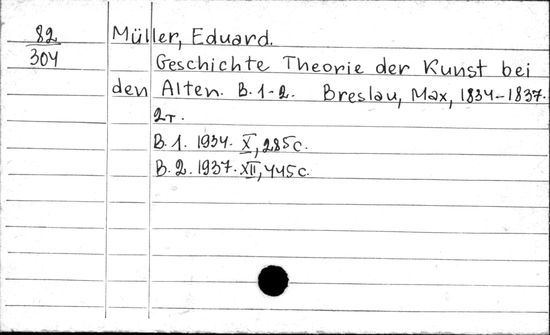 82
304
Müller, Eduard.
Geschichte Theorie der Kunst bei
den Alten. B. 1-2. Breslau, Max, 1834-1837.
2т.
B. 1. 1934. X, 285c.
B. 2. 1937. XII, 445c.